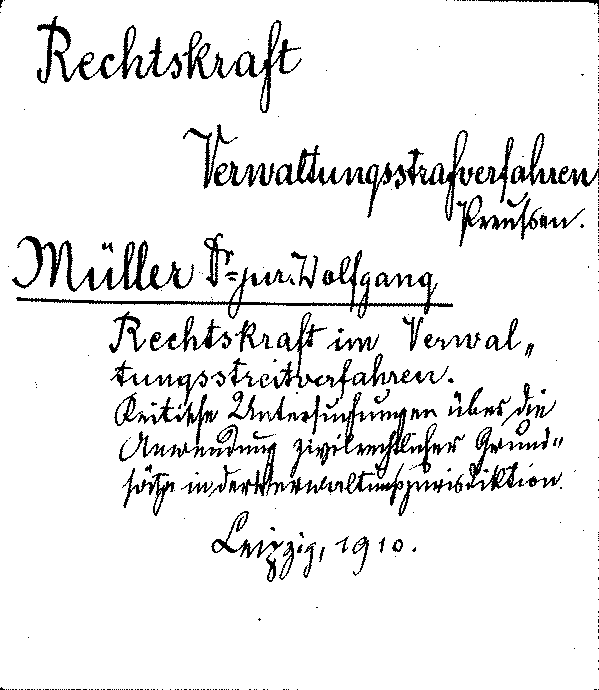 Rechtskraft
Verwaltungsstrafverfahren
Preußen.
Müller Dr. jur. Wolfgang
Rechtskraft im Verwal„
tungsstreitverfahren.
Kritische Untersuchungen über die
Anwendung zivilrechtlicher Grund„
sätze in der Verwaltungsjurisdiktion.
Leipzig, 1910.